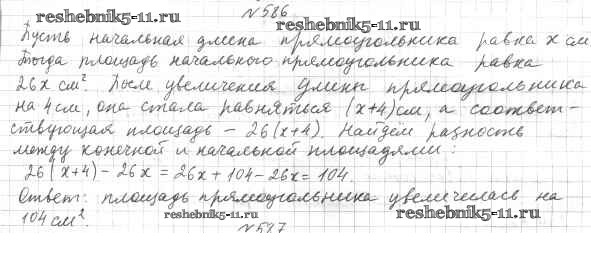 №586
reshebnik5-11.ru
reshebnik5-11.ru
Пусть начальная длина прямоугольника равна x см
Тогда площадь начального прямоугольника равна
26x см². После увеличения длины прямоугольника
на 4 см, она стала равняться (x+4) см, а соответ-
ствующая площадь – 26(x+4). Найдём разность
между конечной и начальной площадями:
26(x+4) – 26x = 26x + 104 – 26x = 104.
Ответ: площадь прямоугольника увеличилась на
104 см².
reshebnik5-11.ru
reshebnik5-11.ru
№587